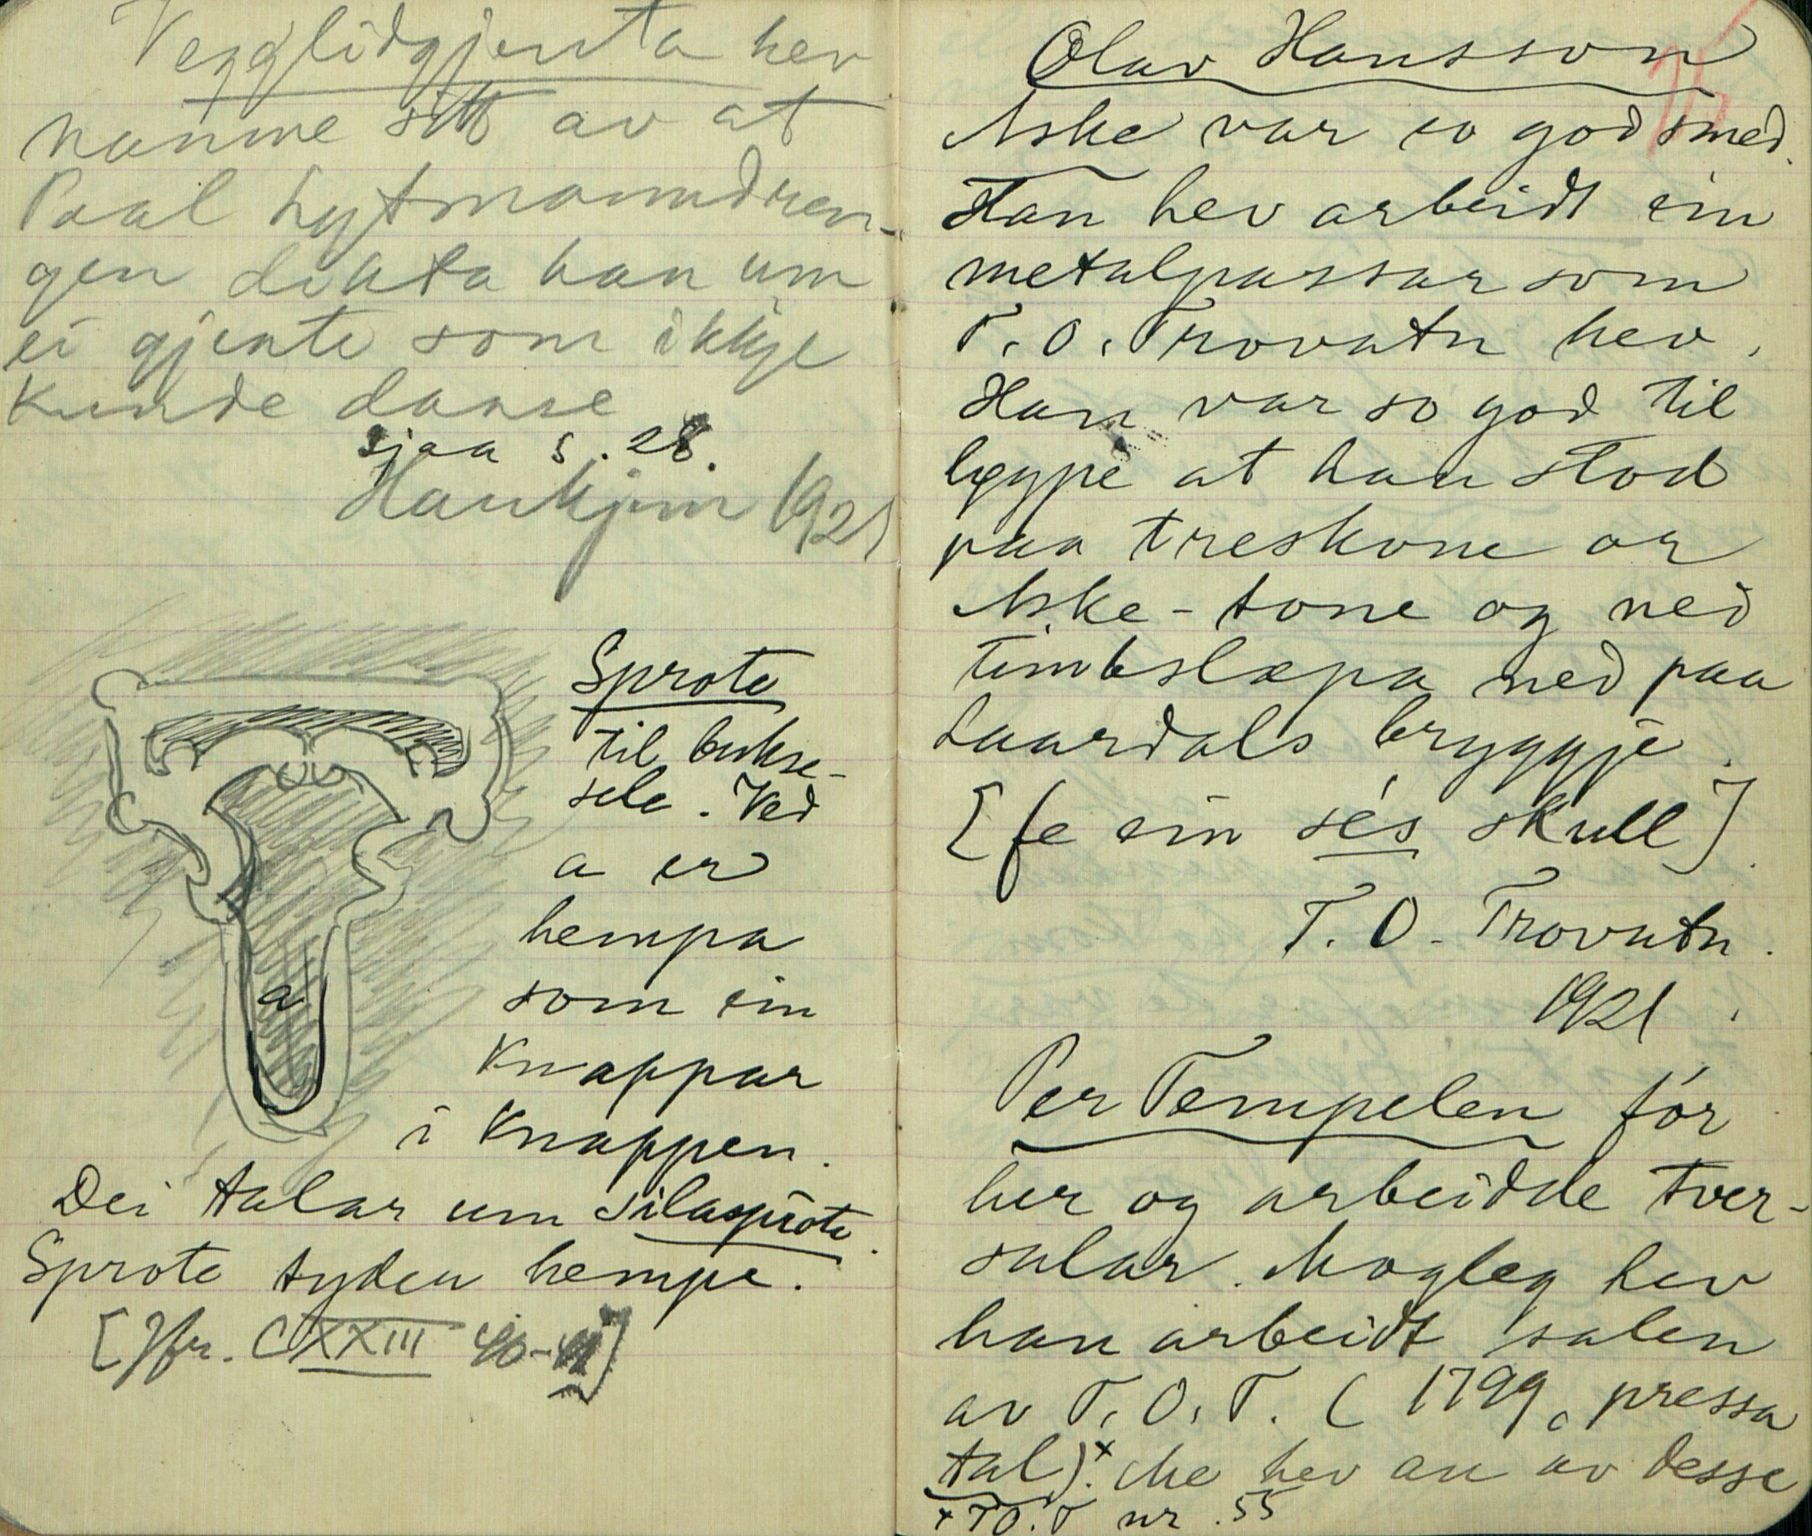 Vegglidgjenta hev
namne sitt av at
Paal Lytmanndren-
gen dikta han um
ei gjente som ikkje
kunde danse
sjaa s. 28.
Haukjem 1921
Sprote
til bukse-
sele. Ved
a er
hempa
som ein
knappar
i knappen.
a
Dei talar um silasprote.
Sprote tyder hempe.
[Jfr. CXXIII 40-41]
Olav Hansson
Aske var so god smed.
Han hev arbeidt ein
metalpassar som
T. O. Trovatn hev.
Han var so god til
løype at han stod
paa treskone or
Aske-tone og ned
timbsløpa ned paa
Laardals bryggje.
[fe ein sés skull]
T. O. Trovatn.
1921.
Per Tempelen fór
her og arbeidde tver-
salar. Mogleg hev
han arbeidt salen
av T. O. T. (1799, pressa
tal).x Me hev an av desse
x T O. T nr. 55